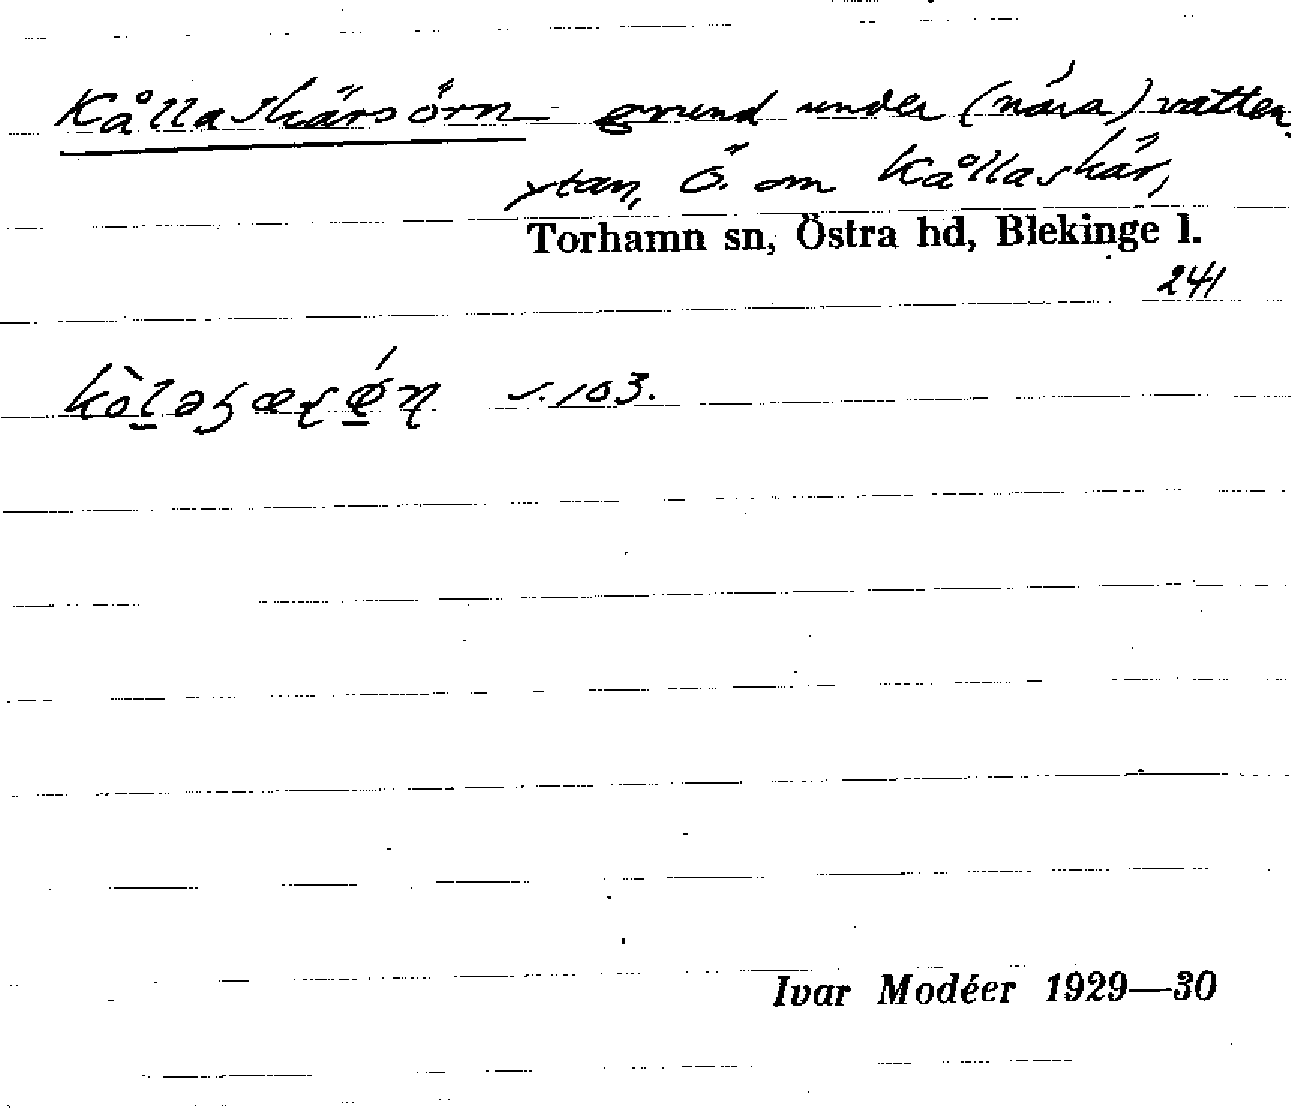 Kållaskärsörn - grund under (nära) vatten-
ytan, Ö. om Kållaskär,
Torhamn sn, Östra hd, Blekinge l.
241
s. 103.
Ivar Modéer 1929—30